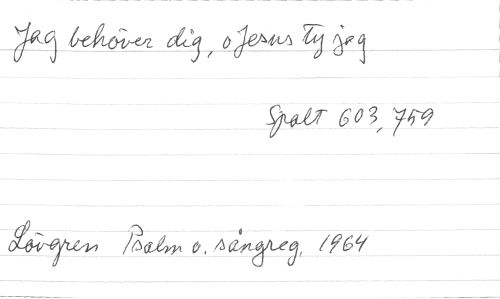 Jag behöver dig, o Jesus Ty jag
Spalt 603, 759
Lövgren Psalm o. sångreg. 1964